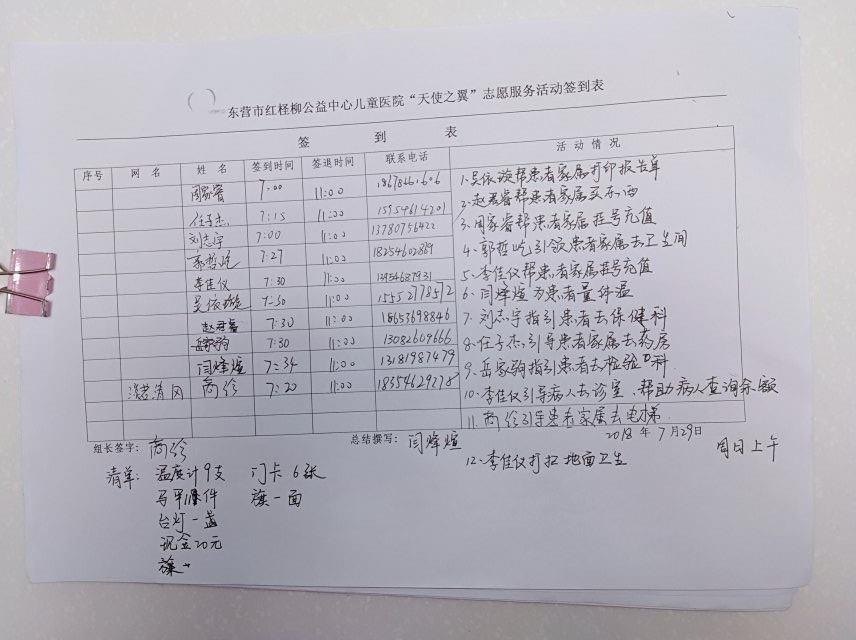 东营市红柽柳公益中心儿童医院“天使之翼”志愿服务活动签到表
签 到 表
序号 网 名 姓 名 签到时间 签退时间 联系电话 活动情况
周家睿 7:00 11:00
任子杰 7:15 11:00 15954614201
刘志宇 7:00 11:00 13780756422
郭哲屹 7:27 11:00 18254602889
李佳仪 7:30 11:00 13954687931
吴依璇 7:30 11:00 15552778512
赵君睿 7:30 11:00 18653698846
岳家驹 7:30 11:00 13082609666
闫烽煊 7:34 11:00 13181987479
淡若清风 商诊 7:20 11:00 18354629278
1.吴依璇帮患者家属打印报告单
2.赵君睿帮患者家属买东西
3.周家睿帮患者家属挂号充值
4.郭哲屹引领患者家属去卫生间
5.李佳仪帮患者家属挂号充值
6.闫烽煊为患者量体温
7.刘志宇指引患者去保健科
8.任子杰引导患者家属去药房
9.岳家驹指引患者去检验科
10.李佳仪引导病人去诊室、帮助病人查询余额
11.商诊引导患者家属去电梯
组长签字:商诊 总结撰写:闫烽煊 2018年7月29日
周日上午
12.李佳仪打扫地面卫生
清单:温度计9支 门卡6张
马甲 件 旗一面
台灯一盏
现金20元